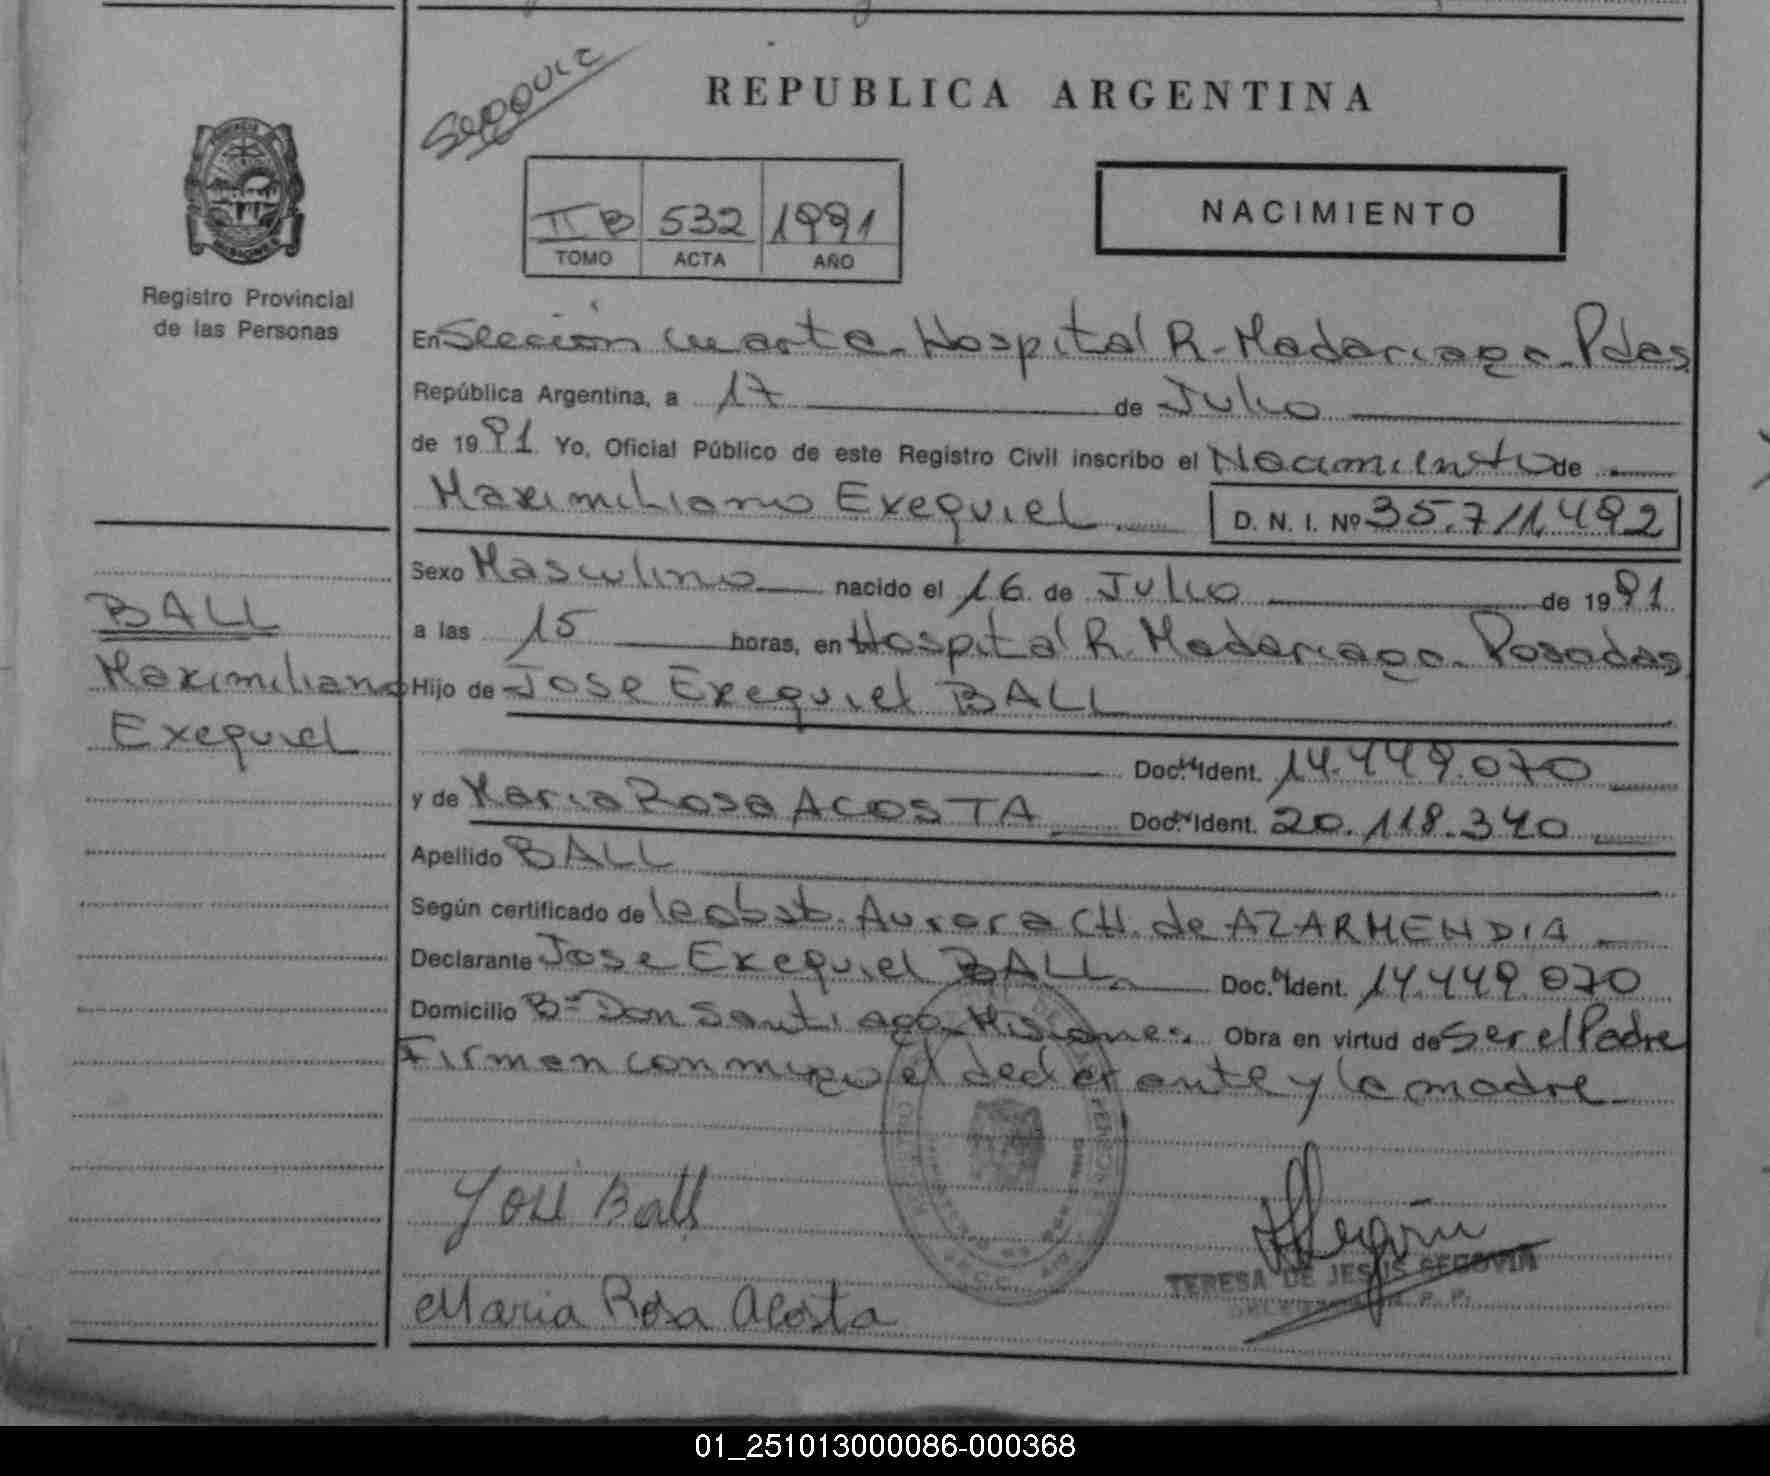 REPUBLICA ARGENTINA
NACIMIENTO
II B 532 1991
TOMO ACTA AÑO
Registro Provincial
de las Personas
En Sección Cuarta - Hospital R. Madariaga - Pdas
República Argentina, a 17 de Julio
de 1991 Yo, Oficial Público de este Registro Civil inscribo el Nacimiento de
Maximiliano Exequiel D. N. I. Nº 35.711.492
Sexo Masculino nacido el 16 de Julio de 1991
a las 15 horas, en Hospital R. Madariaga - Posadas
Hijo de Jose Exequiel BALL
Doc. Ident. 14.449.070
y de Maria Rosa ACOSTA Doc. Ident. 20.118.340
Apellido BALL
Según certificado de la obst. Aurora CH. de AZARMENDIA
Declarante Jose Exequiel BALL Doc. Ident. 14.449.070
Domicilio Bº Don Santiago - Misiones. Obra en virtud de ser el Padre
Firman conmigo el declarante y la madre
BALL
Maximiliano
Exequiel
José Ball
Maria Rosa Acosta
TERESA DE JESUS SEGOVIA
01_251013000086-000368